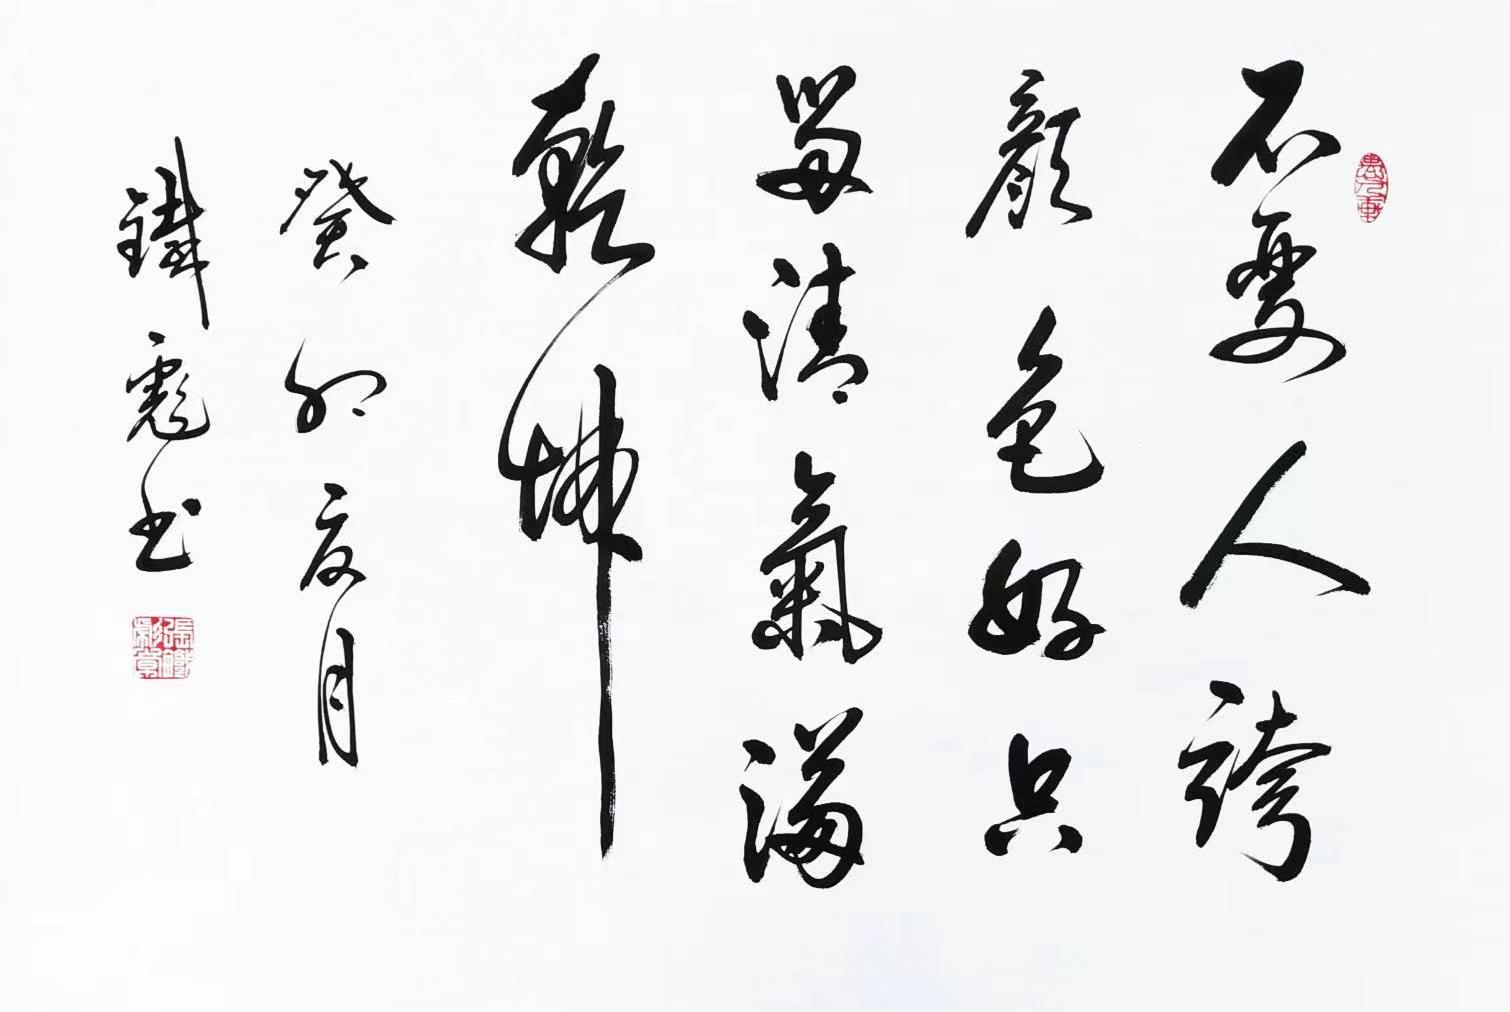 不要人誇
顏色好只
留清氣滿
乾坤
癸卯夏月
鐵彪书